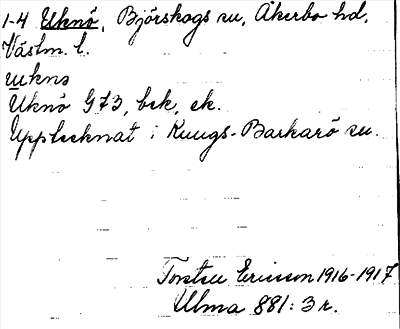 1-4 Uknö, Björskogs sn, Åkerbo hd,
Västm. l.
uknö
Uknö G73, bek, ek.
Upptecknat i Kungs-Barkarö sn.
Torsten Ericsson 1916-1917
Ulma 881:3 r.